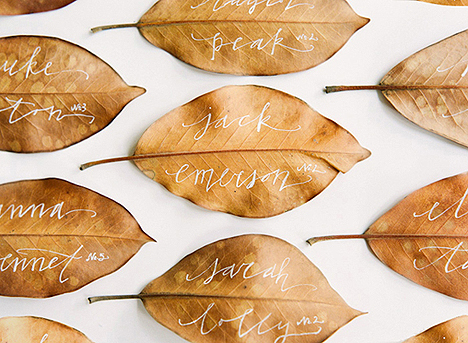 peak No 2
uke
ton No 3
jack
emerson No 2
anna
ennet No 3
sarah
lolly No 2